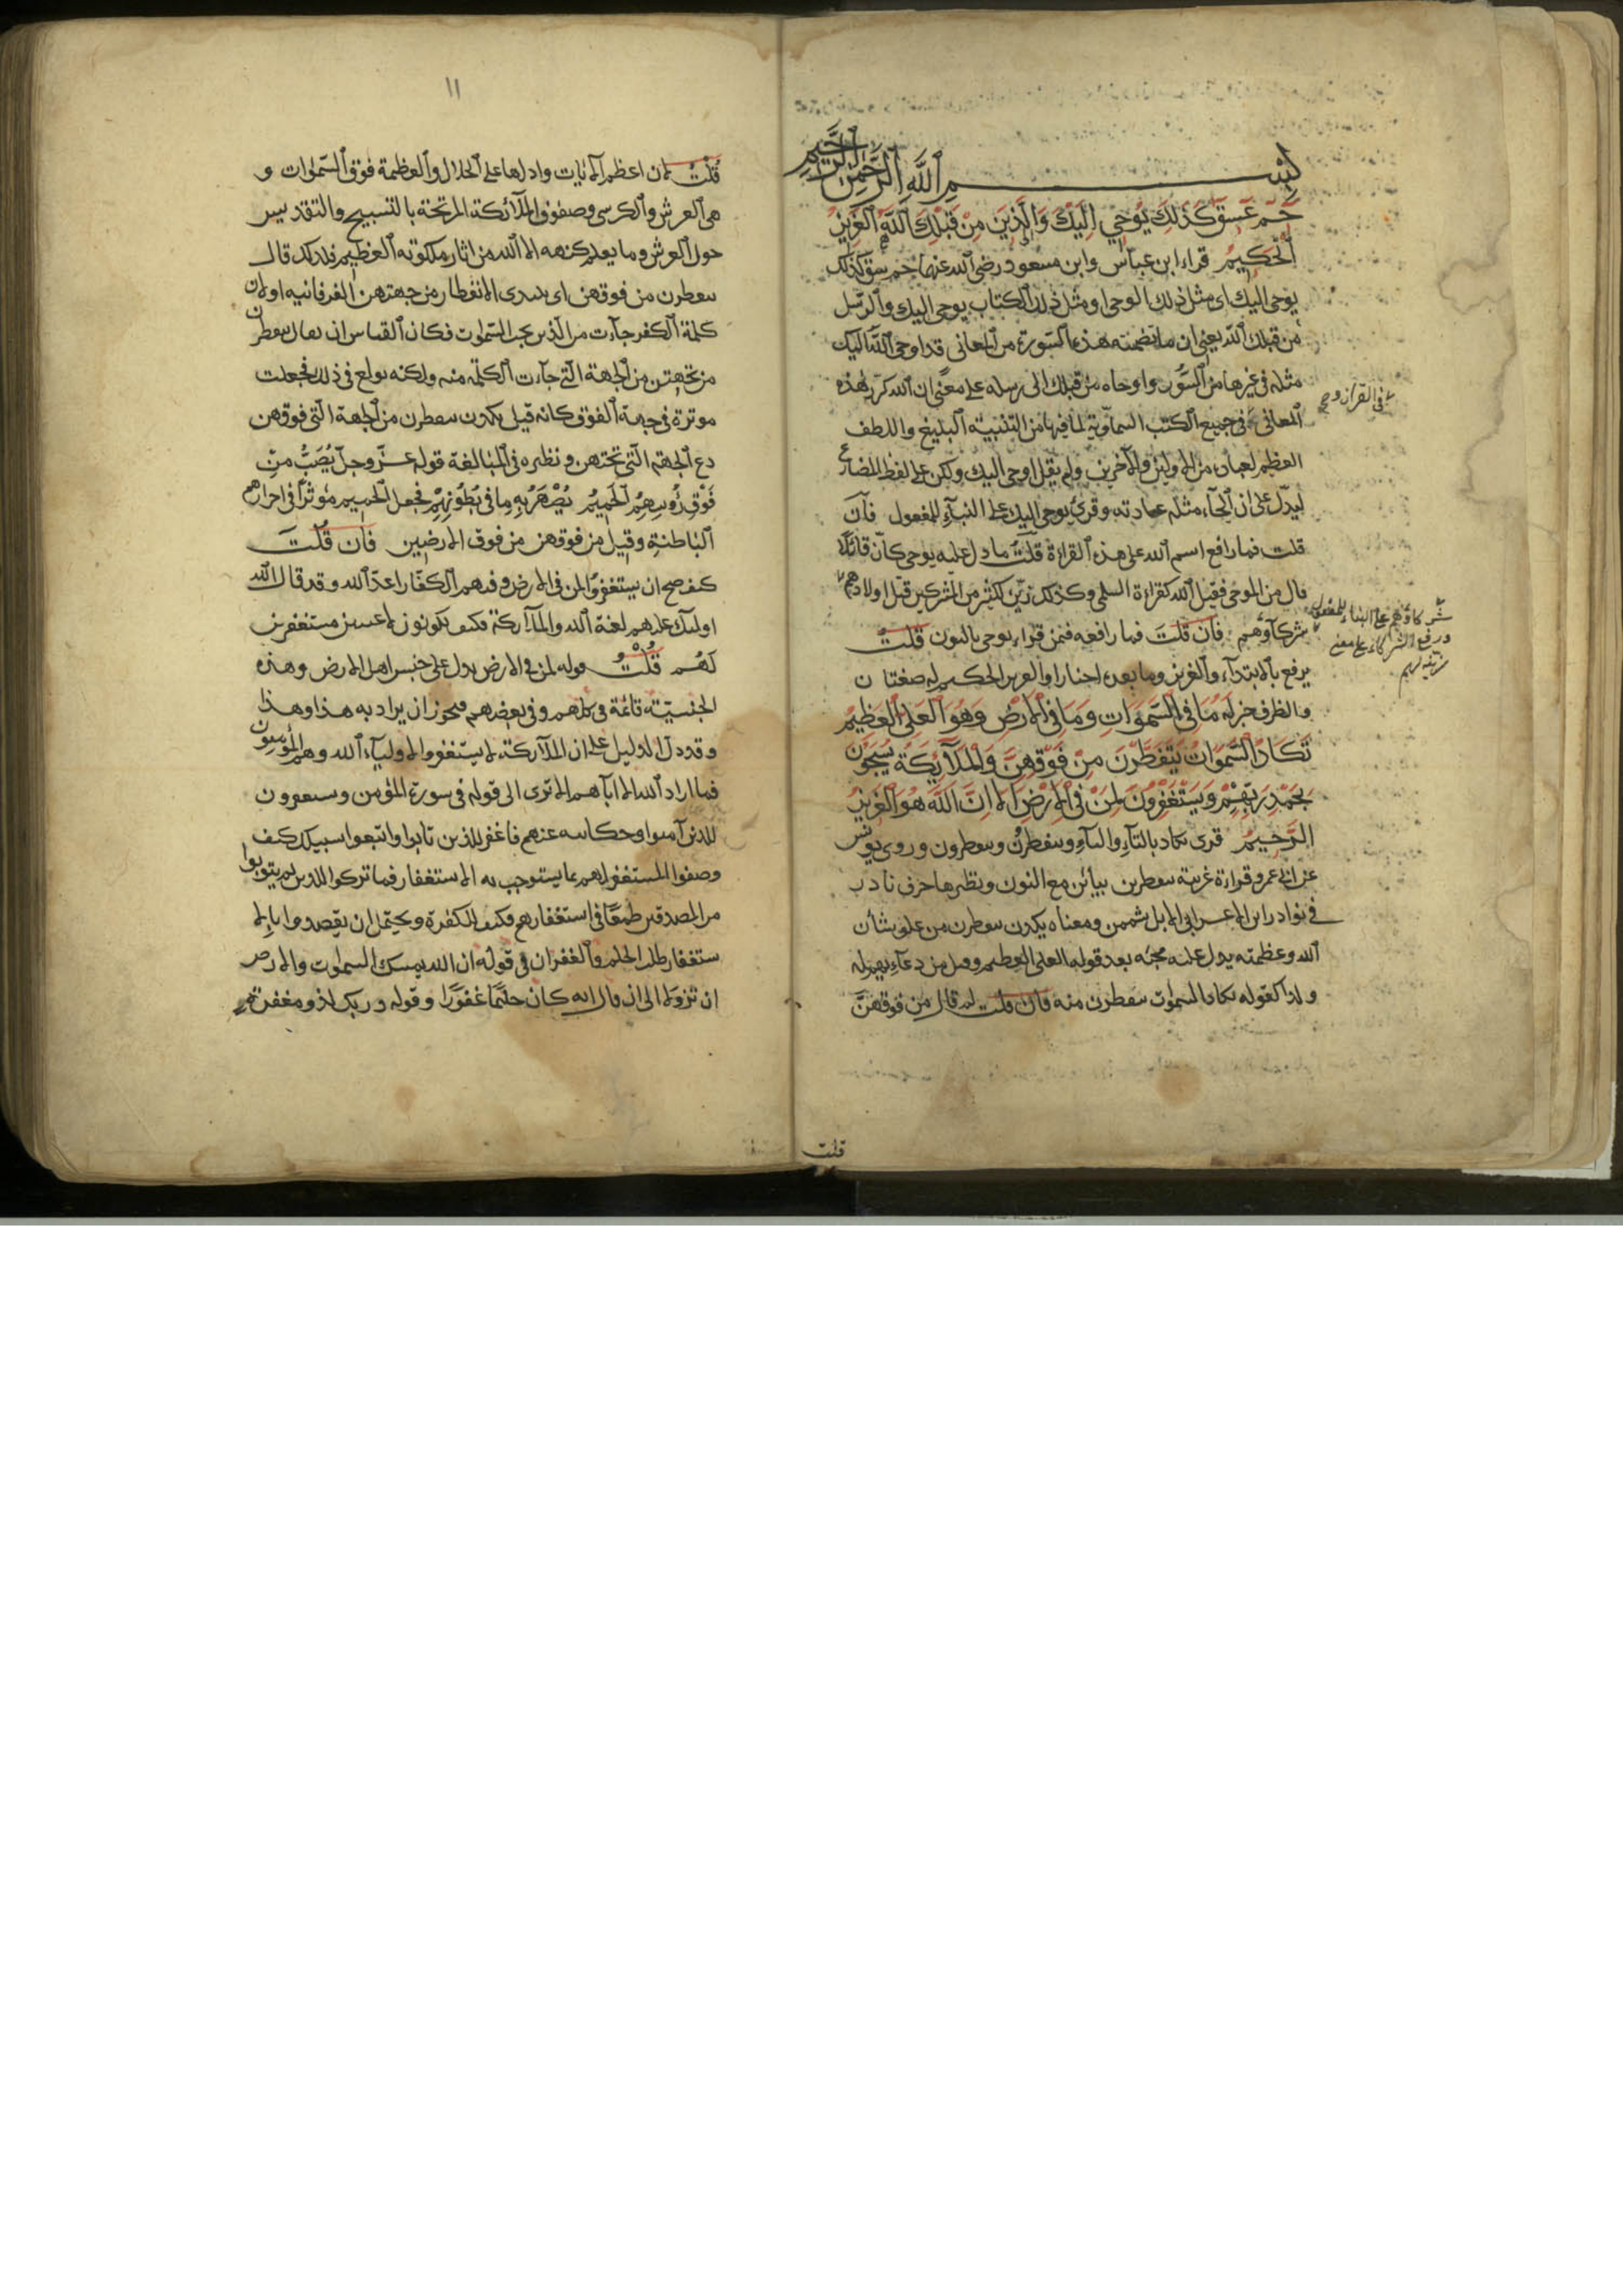 بسم الله الرحمن الرحيم
حم عسق كذلك يوحي اليك والذين من قبلك الله العزيز
الحكيم قراء ابن عباس وابن مسعود رضي الله عنهما حم سق كذلك
يوحى اليك اى مثل ذلك الوحى او مثل ذلك الكتاب يوحى اليك والرسل
من قبلك الله يعنى ان ما تضمنته هذه السورة من المعانى قد اوحى الله اليك
مثله فى غيرها من السور واوحاه من قبلك الى رسله على معنى ان الله كرر هذه
المعانى فى جميع الكتب السماوية لما فيها من التنبيه البليغ واللطف
العظيم لعباده من الاولين والآخرين ولم يقل اوحى اليك ولكن على لفظ المضارع
ليدل على ان ايحاء مثله عادته وقرئ يوحى اليك على البناء للمفعول فان
قلت فما رافع اسم الله على هذه القراءة قلت ما دل عليه يوحى كان قائلا
قال من الموحى فقيل الله كقراءة السلمى وكذلك زين لكثير من المشركين قتل اولادهم
شركاؤهم فان قلت فما رافعه فيمن قراء نوحى بالنون قلت
يرفع بالابتداء والعزيز وما بعده اخبار او العزيز الحكيم له صفتان
والظرف خبر له ما في السموات وما في الارض وهو العلي العظيم
تكاد السموات يتفطرن من فوقهن والملآئكة يسبحون
بحمد ربهم ويستغفرون لمن في الارض الا ان الله هو العزيز
الرحيم قرى تكاد بالتاء والياء وينفطرن ويتفطرن وروى يونس
عن ابى عمرو قراءة غريبة تتفطرن بتائين مع النون ونظيرها حرف نادر
فى نوادر ابن الاعرابى الابل تشممن ومعناه يكدن ينفطرن من علو شأن
الله وعظمته يدل عليه مجئه بعد قوله العلى العظيم وقيل من دعائهم له
ولدا كقوله تكاد السموات يتفطرن منه فان قلت لم قال من فوقهن
فى القرآن و
شركاؤهم على البناء للمفعول
ورفع الشركاء على معنى
زينه لهم
قلت
١١
قلت لان اعظم الآيات وادلها على الجلال والعظمة فوق السموات و
هى العرش والكرسى وصفوف الملآئكة المرتجة بالتسبيح والتقديس
حول العرش وما يعلم كنهه الا الله من اثار ملكوته العظيم فلذلك قال
يتفطرن من فوقهن اى يبتدى الانفطار من جهتهن الفوقانيه او لان
كلمة الكفر جآءت من الذين تحت السموات فكان القياس ان يقال يتفطرن
من تحتهن من الجهة التى جآءت الكلمة منه ولكنه بولغ فى ذلك فجعلت
موثرة فى جهة الفوق كانه قيل يكدن يتفطرن من الجهة التى فوقهن
دع الجهة التى تحتهن ونظيره فى المبالغة قوله عز وجل يصب من
فوق رؤسهم الحميم يصهر به ما فى بطونهم فجعل الحميم مؤثرا فى اجزائهم
الباطنة وقيل من فوقهن من فوق الارضين فان قلت
كيف صح ان يستغفروا لمن فى الارض وفيهم الكفار اعدآء الله وقد قال الله
اولئك عليهم لعنة الله والملآئكة فكيف يكونون لاعنين مستغفرين
لهم قلت قوله لمن فى الارض يدل على جنس اهل الارض وهذه
الجنسيته قائمة فى كلهم وفى بعضهم فيجوز ان يراد به هذا وهذا
وقد دل الدليل على ان الملآئكة لا يستغفروا الا لاولياء الله وهم المؤمنون
فما اراد الله الا اياهم الا ترى الى قوله فى سورة المؤمن ويستغفرون
للذين آمنوا وحكايته عنهم فاغفر للذين تابوا واتبعوا سبيلك كيف
وصفوا المستغفر لهم بما يستوجب به الاستغفار فما تركوا للذين لم يتوبوا
من المصدقين طمعا فى استغفارهم فكيف للكفرة ويحتمل ان يقصدوا بالا
ستغفار طلب الحلم والغفران فى قوله ان الله يمسك السموات والارض
ان تزولا الى ان قال انه كان حليما غفورا وقوله وربك لذو مغفرة